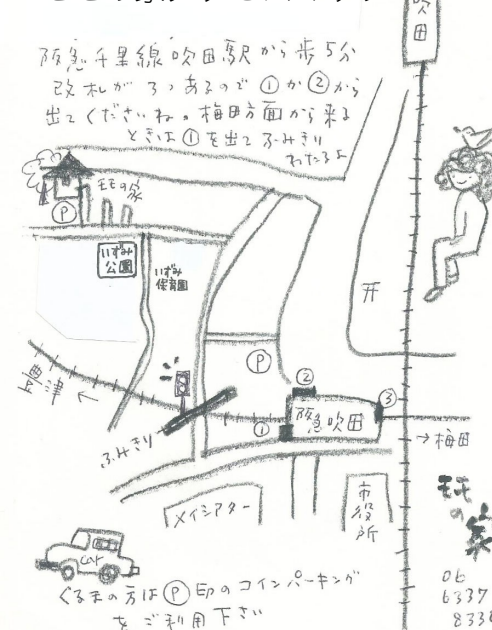 吹田
阪急千里線吹田駅から歩5分
改札が3つあるので①か②から
出てくださいね。梅田方面から来る
ときは①を出てふみきり
わたるよ
モモの家
P
いずみ
公園
いずみ
保育園
开
P
②
豊津
←
①
阪急吹田
③
→梅田
ふみきり
メイシアター
市役所
モモの家
car
06
6337
833
くるまの方はⓅ印のコインパーキング
をご利用下さい